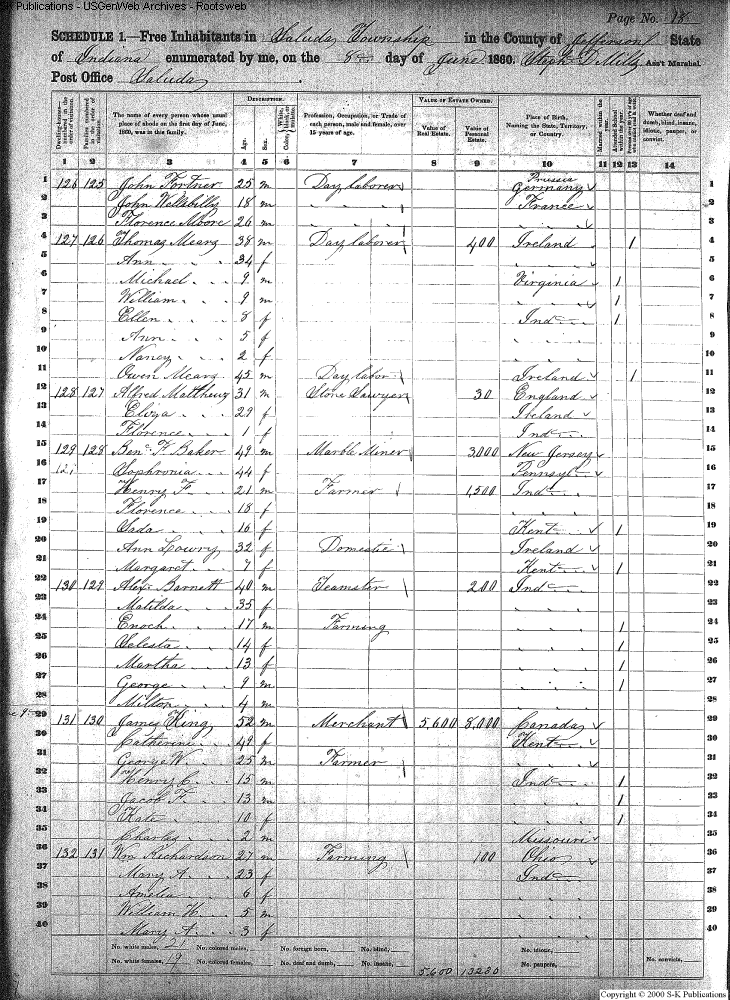 S-K Publications - USGenWeb Archives - Rootsweb
Page No. 18
SCHEDULE 1.—Free Inhabitants in Saluda Township in the County of Jefferson State
of Indiana enumerated by me, on the 8th day of June 1860. Ass't Marshal.
Post Office Saluda
DESCRIPTION. VALUE OF ESTATE OWNED.
Dwelling-houses—numbered in the order of visitation. Families numbered in the order of visitation. The name of every person whose usual place of abode on the first day of June, 1860, was in this family. Age. Sex. Color, White, black, or mulatto. Profession, Occupation, or Trade of each person, male and female, over 15 years of age. Value of Real Estate. Value of Personal Estate. Place of Birth, Naming the State, Territory, or Country. Married within the year. Attended School within the year. Whether deaf and dumb, blind, insane, idiotic, pauper, or convict.
1 2 3 4 5 6 7 8 9 10 11 12 13 14
1 126 125 John Fortner 25 m Day laborer Prussia Germany 1
2 John 18 m " " France 2
3 Florence Moore 26 m " " " 3
4 127 126 Thomas Mearz 38 m Day laborer 400 Ireland 1 4
5 Ann 34 f " 5
6 Michael 9 m Virginia 1 6
7 William 9 m " 1 7
8 Ellen 8 f Ind 1 8
9 Ann 5 f " 9
10 Nancy 2 f " 10
11 Owen Mearz 45 m Day labor Ireland 1 11
12 128 127 Alfred Matthews 31 m Stone Sawyer 30 England 12
13 Eliza 29 f Ireland 13
14 Florence 1 f Ind 14
15 129 128 Benj F Baker 49 m Marble Miner 3,000 New Jersey 15
16 Sophronia 44 f Pennsyl 16
17 Henry F. 21 m Farmer 1,500 Ind 17
18 Florence 18 f " 18
19 Sada 16 f Kent 1 19
20 Ann Lowry 32 f Domestic Ireland 20
21 Margaret 7 f Kent 1 21
22 130 129 Alex Barnett 40 m Teamster 200 Ind 22
23 Matilda 35 f " 23
24 Enoch 17 m Farming " 1 24
25 Selesta 14 f " 1 25
26 Martha 13 f " 1 26
27 George 9 m " 1 27
28 Milton 4 m " 28
29 131 130 James King 52 m Merchant 5,600 8,000 Canada 29
30 Catherine 49 f Kent 30
31 George W. 25 m Farmer " 31
32 Henry C. 15 m Ind 1 32
33 Jacob F. 13 m " 1 33
34 Kate 10 f " 1 34
35 Charles 2 m Missouri 35
36 132 131 Wm Richardson 27 m Farming 100 Ohio 36
37 Mary A. 23 f Ind 37
38 Amelia 6 f " 38
39 William H. 5 m " 39
40 Mary A. 3 f " 40
No. white males, 21 No. colored males, No. foreign born, No. blind, No. idiotic,
No. white females, 19 No. colored females, No. deaf and dumb, No. insane, 5,600 13230 No. paupers, No. convicts,
Copyright © 2000 S-K Publications